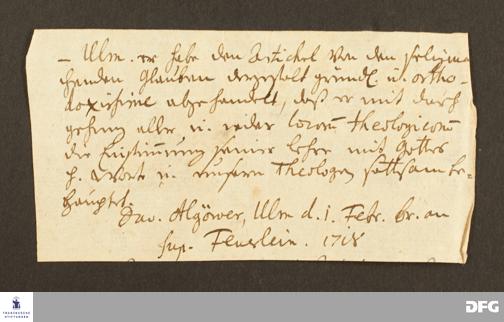 – Ulm. er habe den Artickel von den seligma-
chenden Glauben dergestalt gründl. u. ortho-
doxissime abgehandelt, daß er mit durch
gehung aller u. jeder locorum theologicorum
die Einstimmung seiner Lehre mit Gottes
h. Wort u. unsern Theologen sattsam be-
hauptet.
Dav. Algöwer, Ulm d. 1. Febr. br. an
sup. Feuerlein. 1718
FRANCKESCHE
STIFTUNGEN
DFG